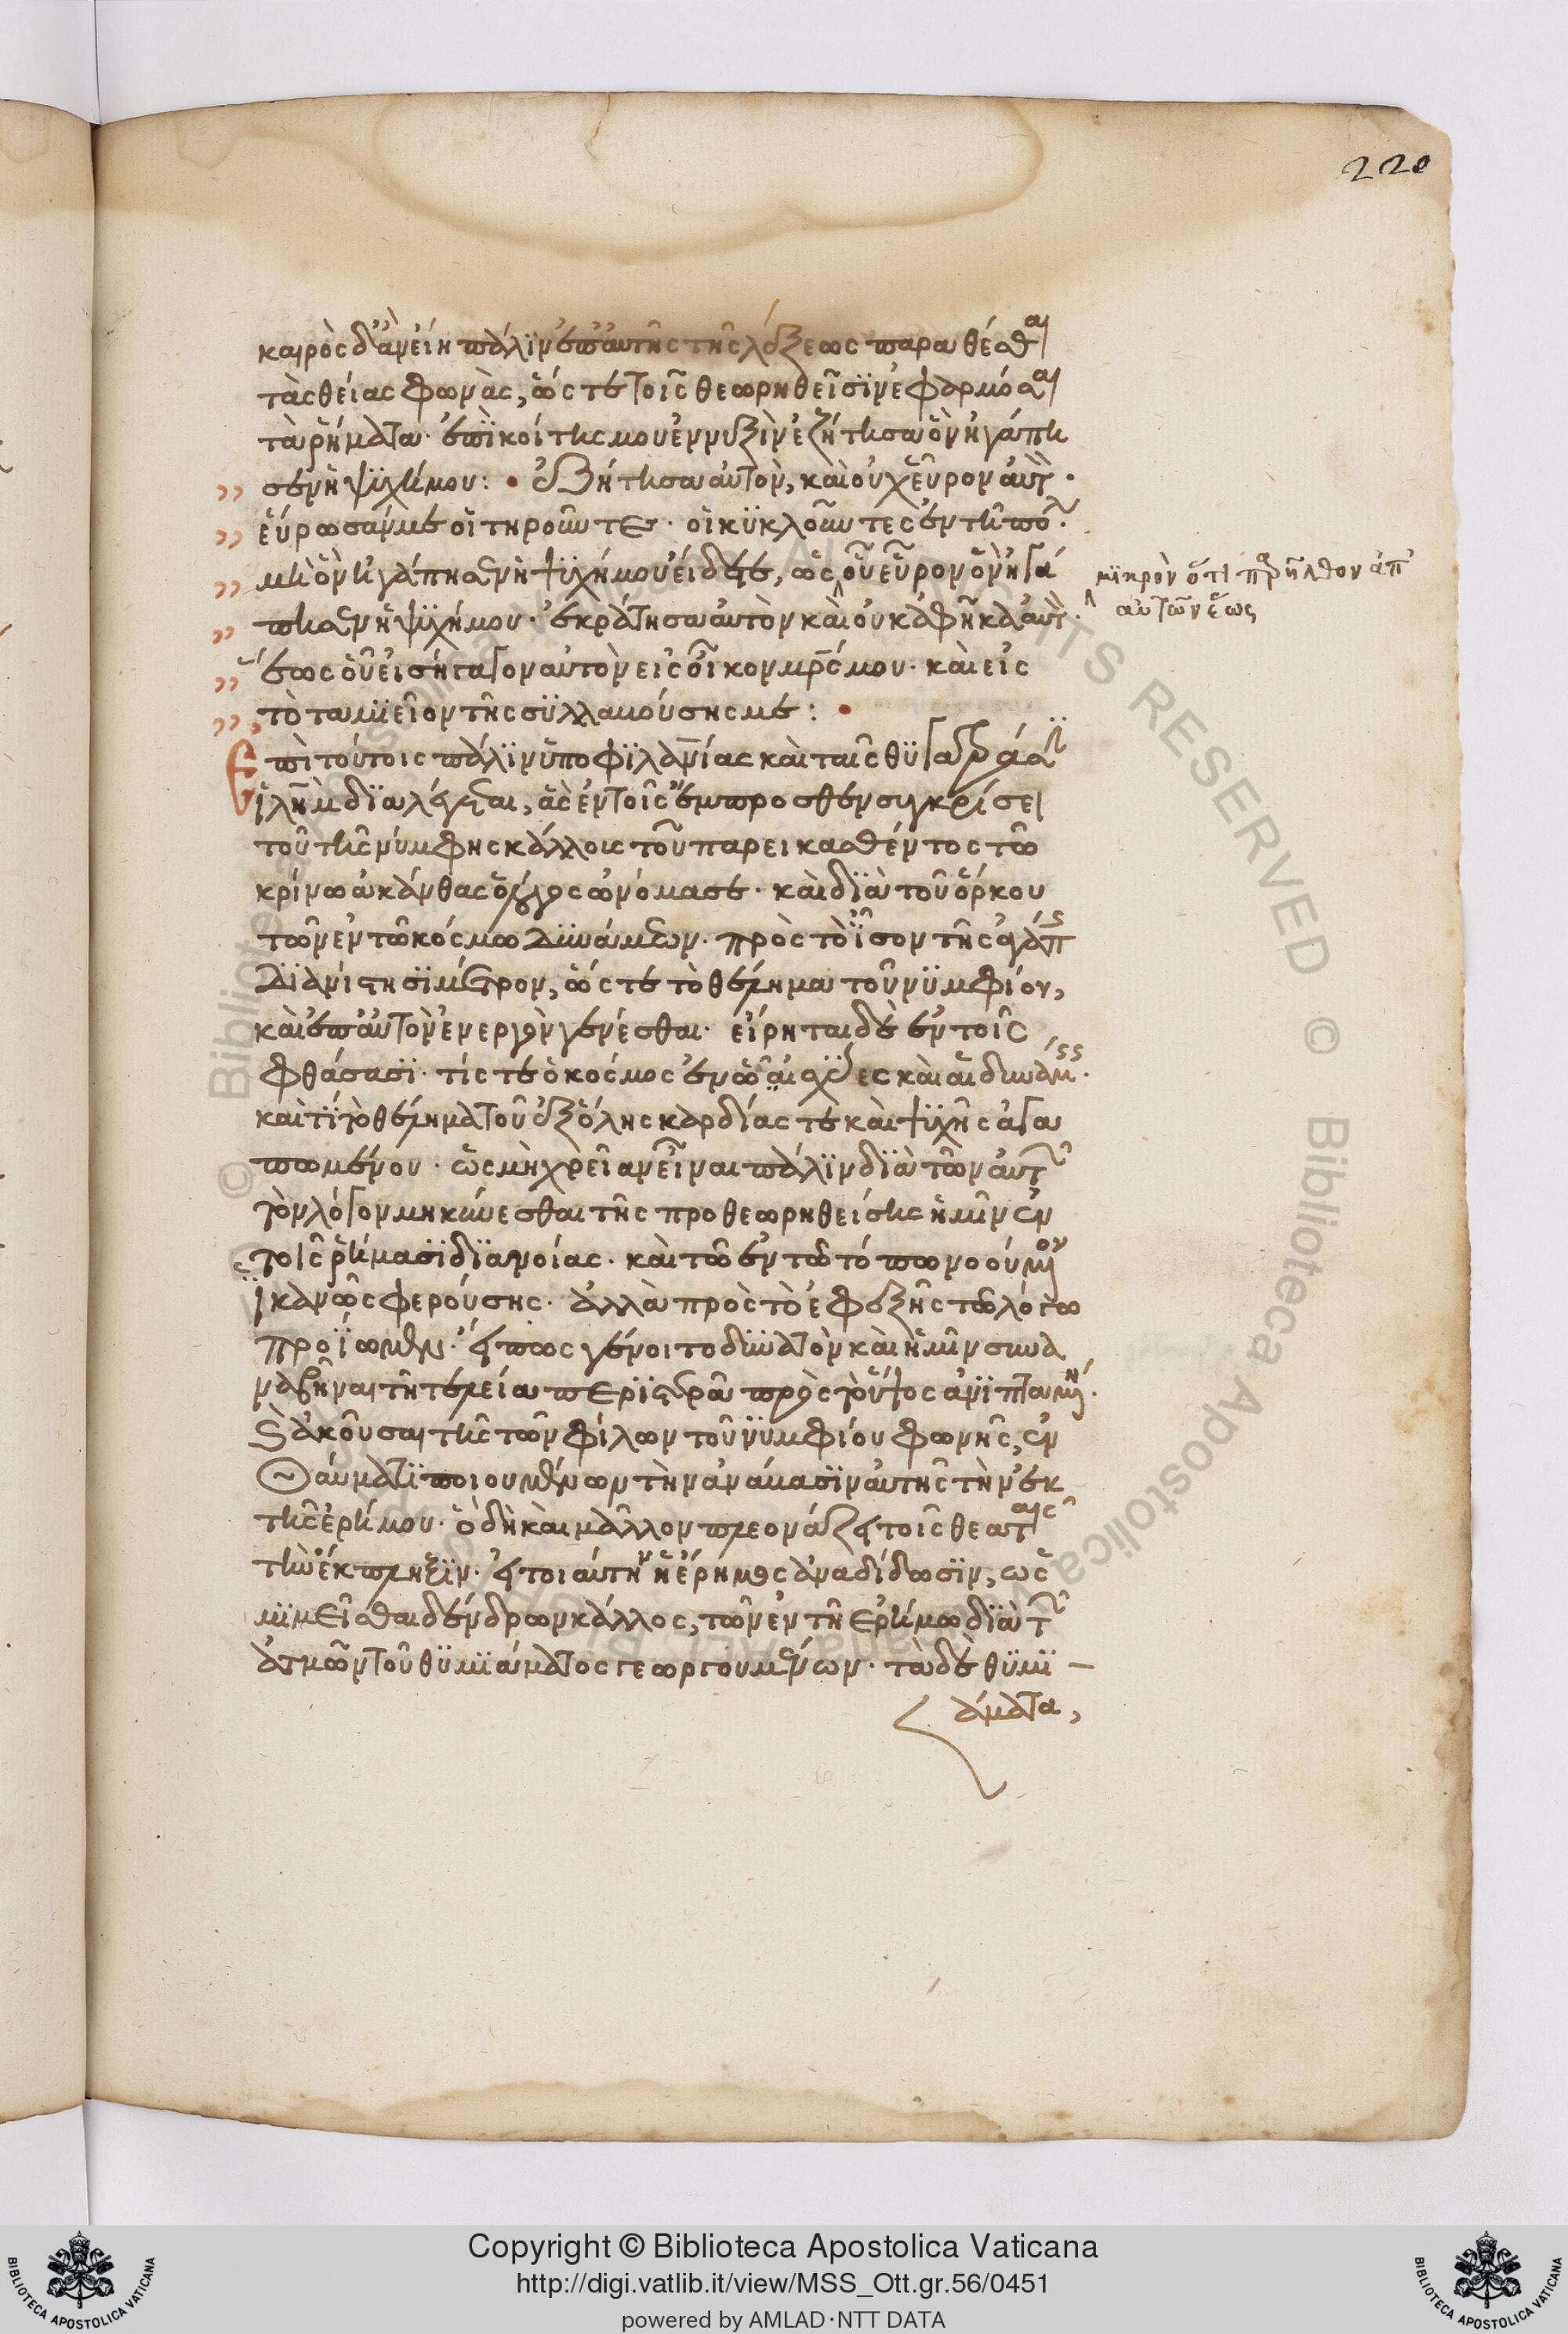 220
καιρὸς δ' ἂν εἴη πάλιν ἐπ' αὐτῆς τῆς λέξεως παραθέσθαι
τὰς θείας φωνὰς, ὥς τε τοῖς θεωρηθεῖσιν ἐφαρμόσαι
τὰ ῥήματα· ἐπὶ κοίτης μου ἐν νυξὶν ἐζήτησα ὃν ἠγάπη
σεν ἡ ψυχή μου: · ἐζήτησα αὐτὸν, καὶ οὐχ εὗρον αὐτὸν·
εὕρωσάν με οἱ τηροῦντες· οἱ κυκλοῦντες ἐν τῆ πό·
μὴ ὃν ἠγάπησεν ἡ ψυχή μου εἴδετε, ὡς οὗ εὗρον ὃν ἠγά
πησεν ἡ ψυχή μου· ἐκράτησα αὐτὸν καὶ οὐκ ἀφῆκα αὐτὸν·
ἕως οὗ εἰσήγαγον αὐτὸν εἰς οἶκον μρς μου· καὶ εἰς
τὸ ταμιεῖον τῆς συλλαβούσης με: ·
μικρὸν ὅτι παρῆλθον ἀπ'
αὐτῶν ἕως
Ἐπὶ τούτοις πάλιν ὑπὸ φιλανίας καὶ ταῖς θυγατράσιν
ἱλὴμ διαλέγεται, ἃς ἐν τοῖς ἔμπροσθεν συγκρίσει
τοῦ τῆς νύμφης κάλλους τοῦ παρεικασθέντος τῶ
κρίνω ἀκάνθας ὁ λόγος ὠνόμασε· καὶ διὰ τοῦ ὅρκου
τῶν ἐν τῶ κόσμω δυνάμεων· πρὸς τὸ ἶσον τῆς ἀγάπης
διανίστησι μέτρον, ὥς τε τὸ θέλημα τοῦ νυμφίου,
καὶ ἐπ' αὐτὸν ἐνεργὸν γενέσθαι· εἴρηται δὲ ἐν τοῖς
φθάσασι· τίς τε ὁ κόσμος ἐν ὧ αἱ ἀγρες καὶ αἱ δυνάμεις·
καὶ τί τὸ θέλημα τοῦ ἐξ ὅλης καρδίας τε καὶ ψυχῆς ἀγα
πωμένου· ὡς μὴ χρεῖαν εἶναι πάλιν διὰ τῶν αὐτῶν
τὸν λόγον μηκύνεσθαι τῆς προθεωρηθείσης ἡμῖν ἐν
τοῖς ῥήμασι διανοίας· καὶ τῶ ἐν τῶ τόπω νοούμενον
ἱκανῶς φερούσης· ἀλλὰ πρὸς τὸ ἐφεξῆς τῶ λόγω
προΐωμεν· εἴ πως γένοιτο δυνατὸν καὶ ἡμῖν συνα
ναβῆναι τῆ τελεία περιστερᾶ πρὸς τὸ ὕψος ἀνιπταμένη·
καὶ ἀκοῦσαι τῆς τῶν φίλων τοῦ νυμφίου φωνῆς, ἐν
θαύματι ποιουμένων τὴν ἀνάβασιν αὐτῆς τὴν ἐκ
τῆς ἐρήμου· ὃ δὴ καὶ μᾶλλον πλεονάζει τοῖς θεαταῖς
τὴν ἔκπληξιν· εἰ τοιαύτην ἡ ἔρημος ἀναδίδωσιν, ὡς
μιμεῖσθαι δένδρων κάλλος, τῶν ἐν τῆ ἐρήμω διὰ τῶν
ἀτμῶν τοῦ θυμιάματος γεωργουμένων· τὰ δὲ θυμι –
άματα,
Copyright © Biblioteca Apostolica Vaticana
http://digi.vatlib.it/view/MSS_Ott.gr.56/0451
powered by AMLAD·NTT DATA